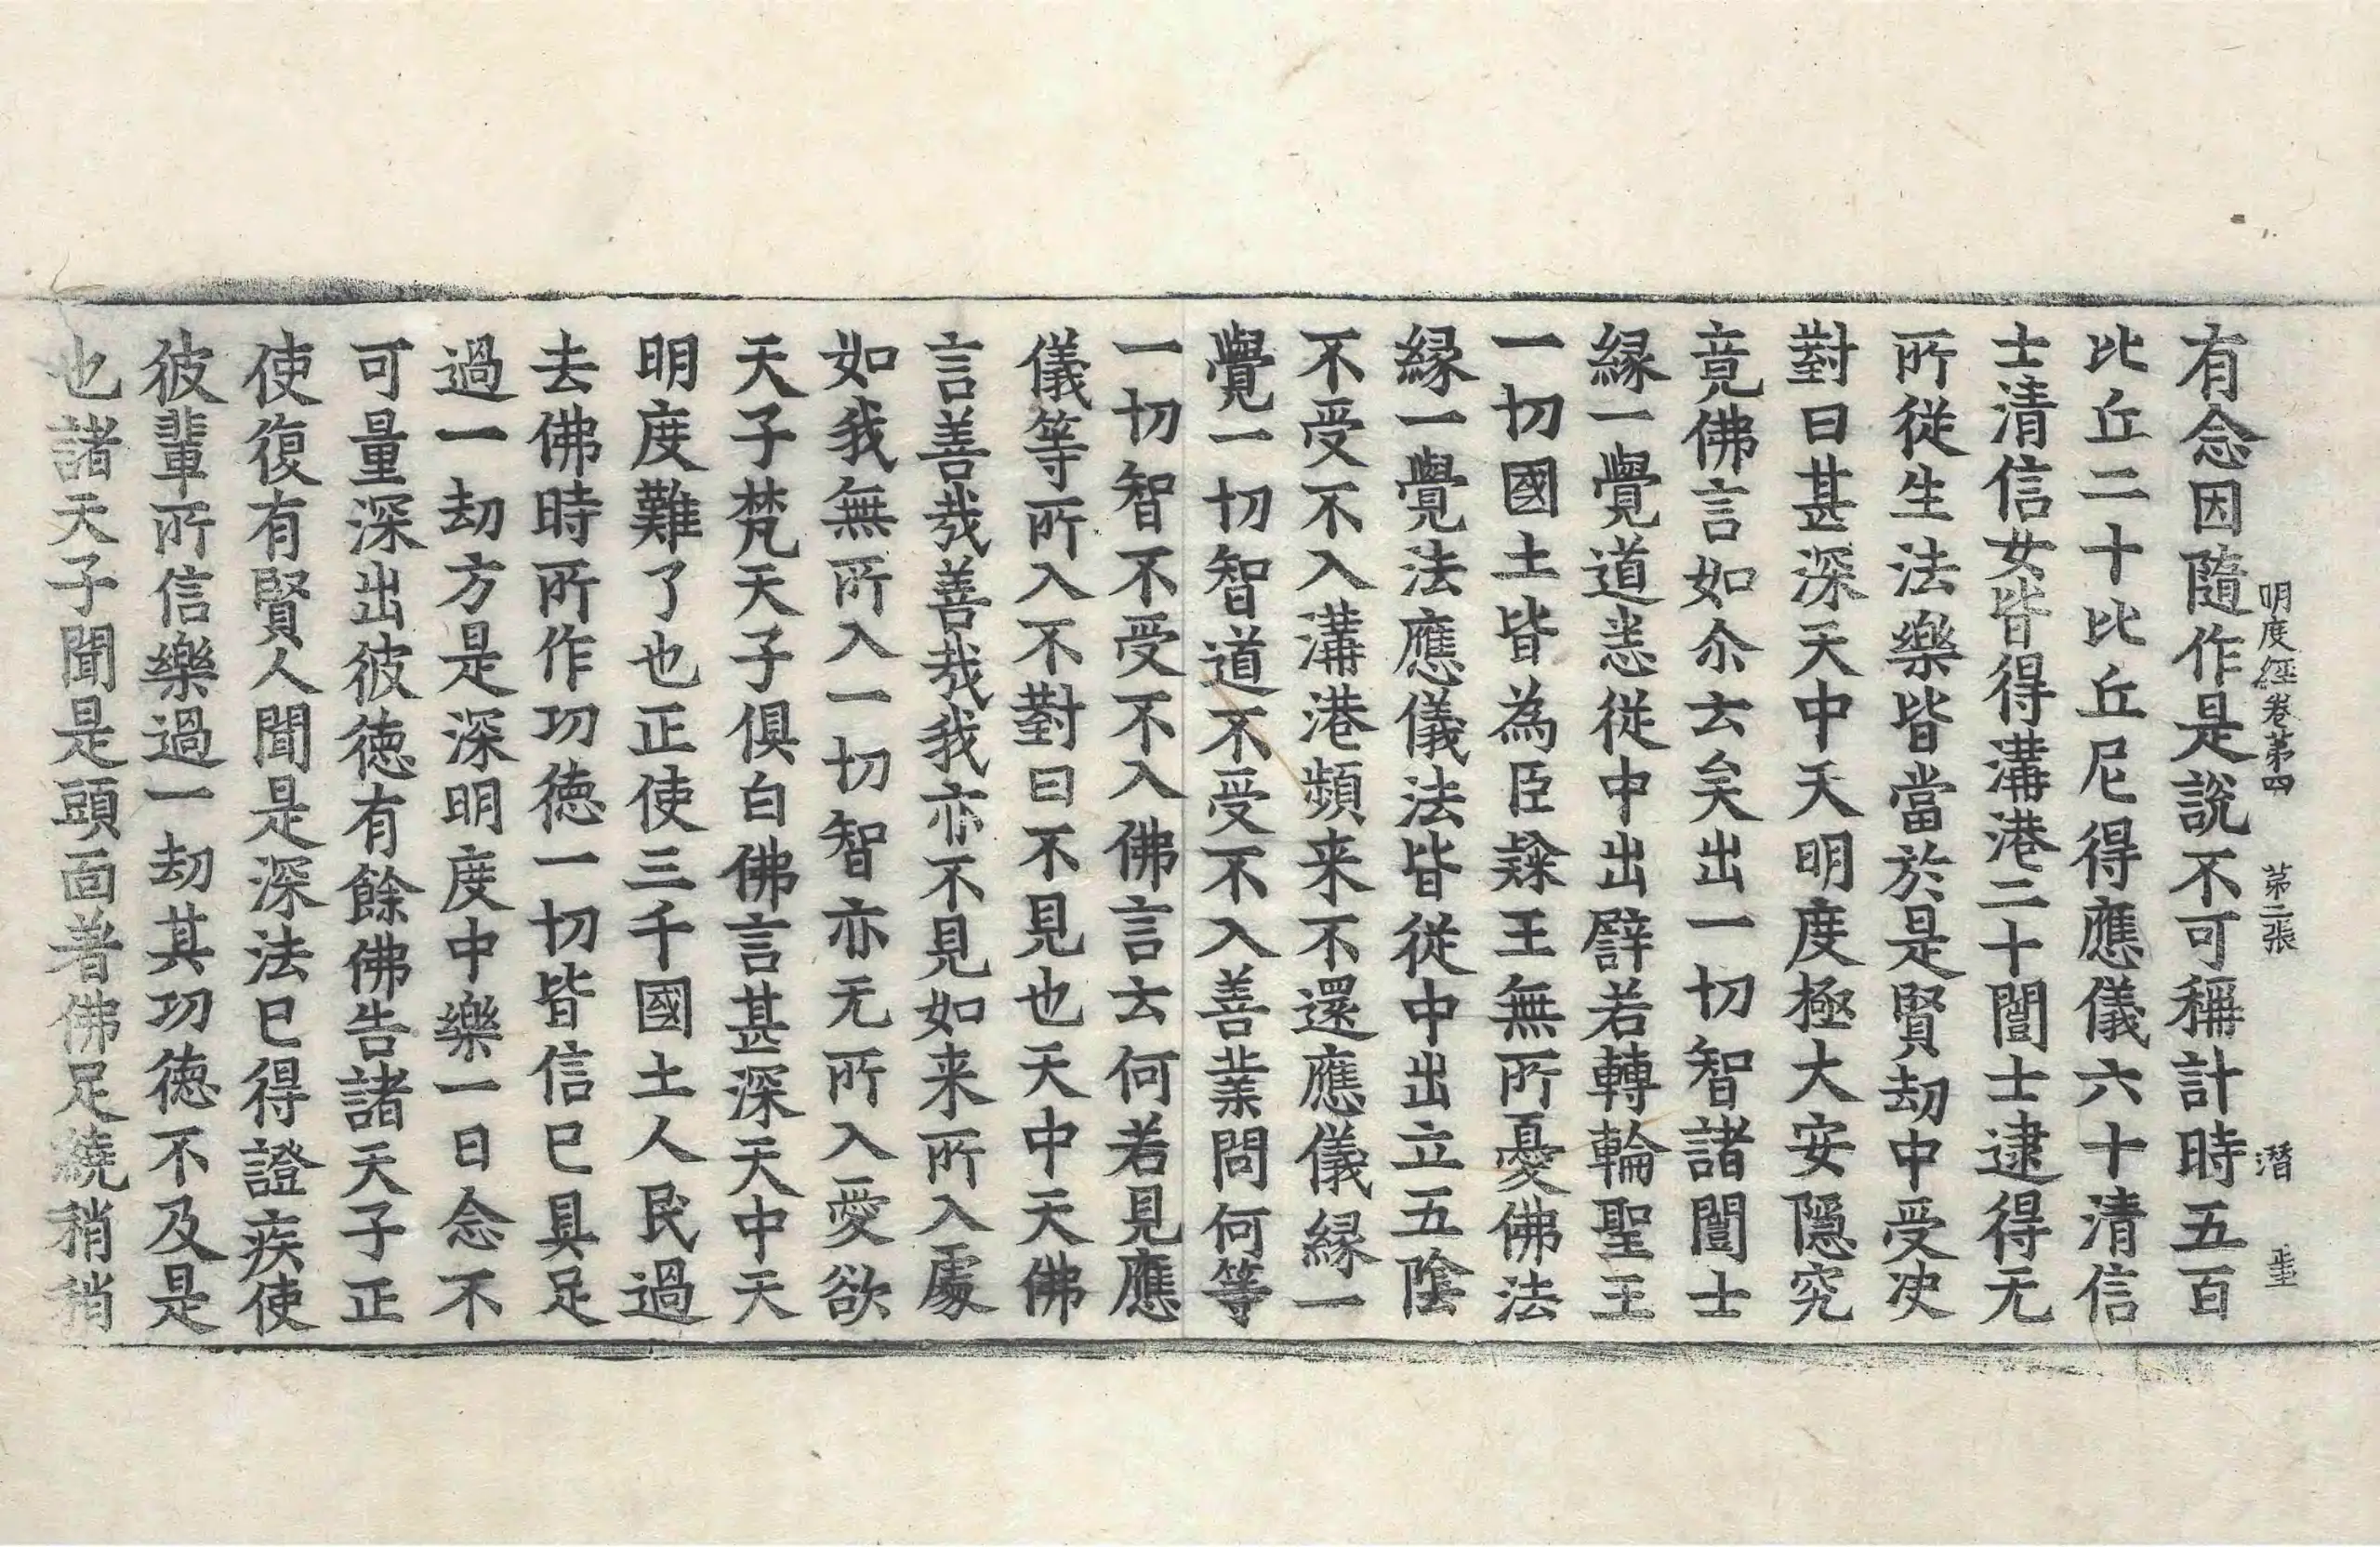 明度經卷第四 第二張 潛
有念因隨作是說不可稱計時五百
比丘二十比丘尼得應儀六十清信
士清信女皆得溝港二十闓士逮得无
所從生法樂皆當於是賢劫中受决
對曰甚深天中天明度極大安隱究
竟佛言如尒去矣出一切智諸闓士
緣一覺道悉從中出譬若轉輪聖王
一切國土皆為臣𨽻王無所憂佛法
緣一覺法應儀法皆從中出立五陰
不受不入溝港頻来不還應儀緣一
覺一切智道不受不入善業問何等
一切智不受不入佛言云何若見應
儀等所入不對曰不見也天中天佛
言善哉善哉我亦不見如来所入處
如我無所入一切智亦无所入愛欲
天子梵天子俱白佛言甚深天中天
明度難了也正使三千國土人民過
去佛時所作功德一切皆信已具足
過一劫方是深明度中樂一日念不
可量深出彼德有餘佛告諸天子正
使復有賢人聞是深法已得證疾使
彼輩所信樂過一劫其功德不及是
也諸天子聞是頭面著佛足繞稍稍